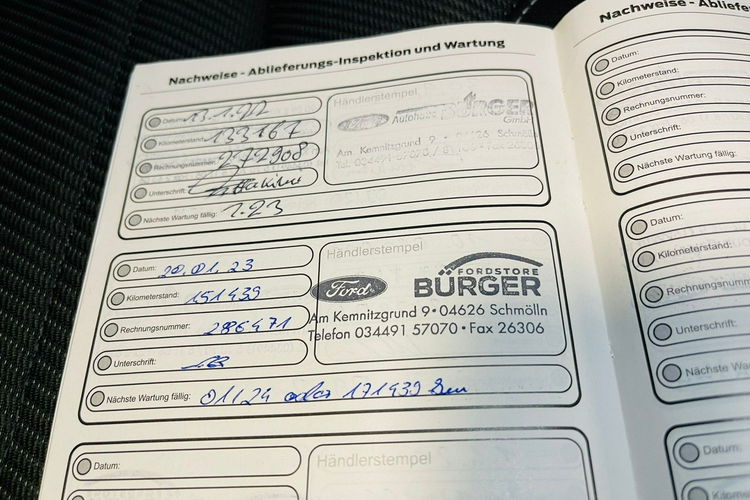 Nachweise - Ablieferungs-Inspektion und Wartung
Datum: 13.1.22
Kilometerstand: 133167
Rechnungsnummer: 272908
Unterschrift:
Nächste Wartung fällig: 1.23
Händlerstempel
Ford Autohaus BÜRGER
GmbH
Am Kemnitzgrund 9 • 04626 Schmölln
Tel. 034491 57070 /
Datum: 20.01.23
Kilometerstand: 151439
Rechnungsnummer: 286471
Unterschrift:
Nächste Wartung fällig: 01/24 oder 171439 km
Händlerstempel
Ford
FORDSTORE
BÜRGER
Am Kemnitzgrund 9 • 04626 Schmölln
Telefon 034491 57070 • Fax 26306
Datum:
Händlerstempel
Nachweise - Abliefe
Datum:
Kilometerstand:
Rechnungsnummer:
Unterschrift:
Nächste Wartung fällig:
Datum:
Kilometerstand:
Rechnungsnumm
Unterschrift:
Nächste Wartung
Datum:
Kilometerstand